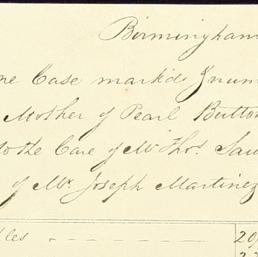 Birmingham
ne Case mark'd & num
Mother of Pearl Butto
to the Care of Mr Thos. Sau
of Mr Joseph Martinez
les - - - - 20